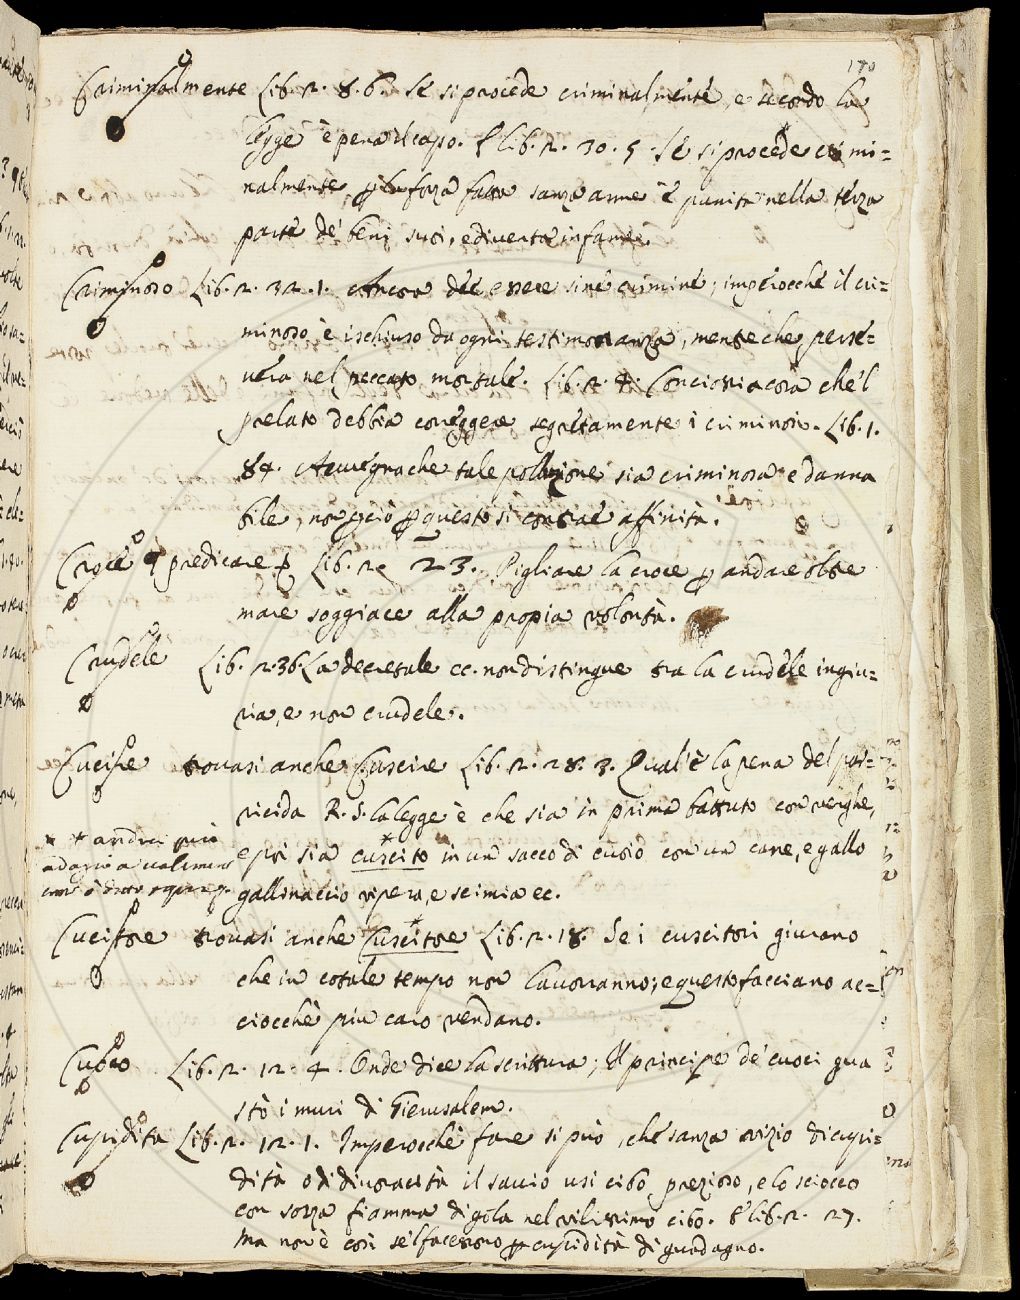 170
Criminalmente Lib. 2. 8. 6. Se si procede criminalmente, e secondo la
legge è pena il capo. E Lib. 2. 30. 5. Se si procede crimi=
nalmente, p la forza fatta sanza arme è punito nella terza
parte de' beni suoi, e diventa infame.
Criminoso Lib. 2. 32. 1. Ancora dee essere sine crimine, imperocchè il cri=
minoso è ischiuso da ogni testimonanza, mentre che perse=
vera nel peccato mortale. Lib. 2. 4. Conciossiacosa che'l
prelato debbia correggere segretamente i criminosi. Lib. 1.
84. Avvegnache tale polluzione sia criminosa e danna
bile, non pciò p questo si contrae affinità.
Croce predicare Lib. 2. 23. Pigliare la croce p andare oltre
mare soggiace alla propia volontà.
Crudele Lib. 2. 36. La decretale ec. non distingue tra la crudele ingiu=
ria, e non crudele.
Cucire trovasi anche Cuscire Lib. 2. 28. 3. Qual'è la pena del par=
ricida R. S. la legge è che sia in prima battuto con verghe,
e poi sia cuscito in un sacco di cuoio con un cane, e gallo
gallinaccio vipera, e scimia ec.
* * andrà più
Cucitore trovasi anche Cuscitore Lib. 2. 18. Se i cuscitori giurano
che in cotale tempo non lavorranno; e questo facciano ac=
ciocchè più caro vendano.
Cuoco Lib. 2. 12. 4. Onde dice la scrittura; Il principe de' cuoci gua
stò i muri di Gierusalem.
Cupidità Lib. 2. 12. 1. Imperocchè fare si può, che sanza vizio di cupi=
dità o di divoracità il savio usi cibo prezioso, e lo sciocco
con sozza fiamma di gola nel vilissimo cibo. E lib. 2. 27.
Ma non è così se'l facessono p cupidità di guadagno.